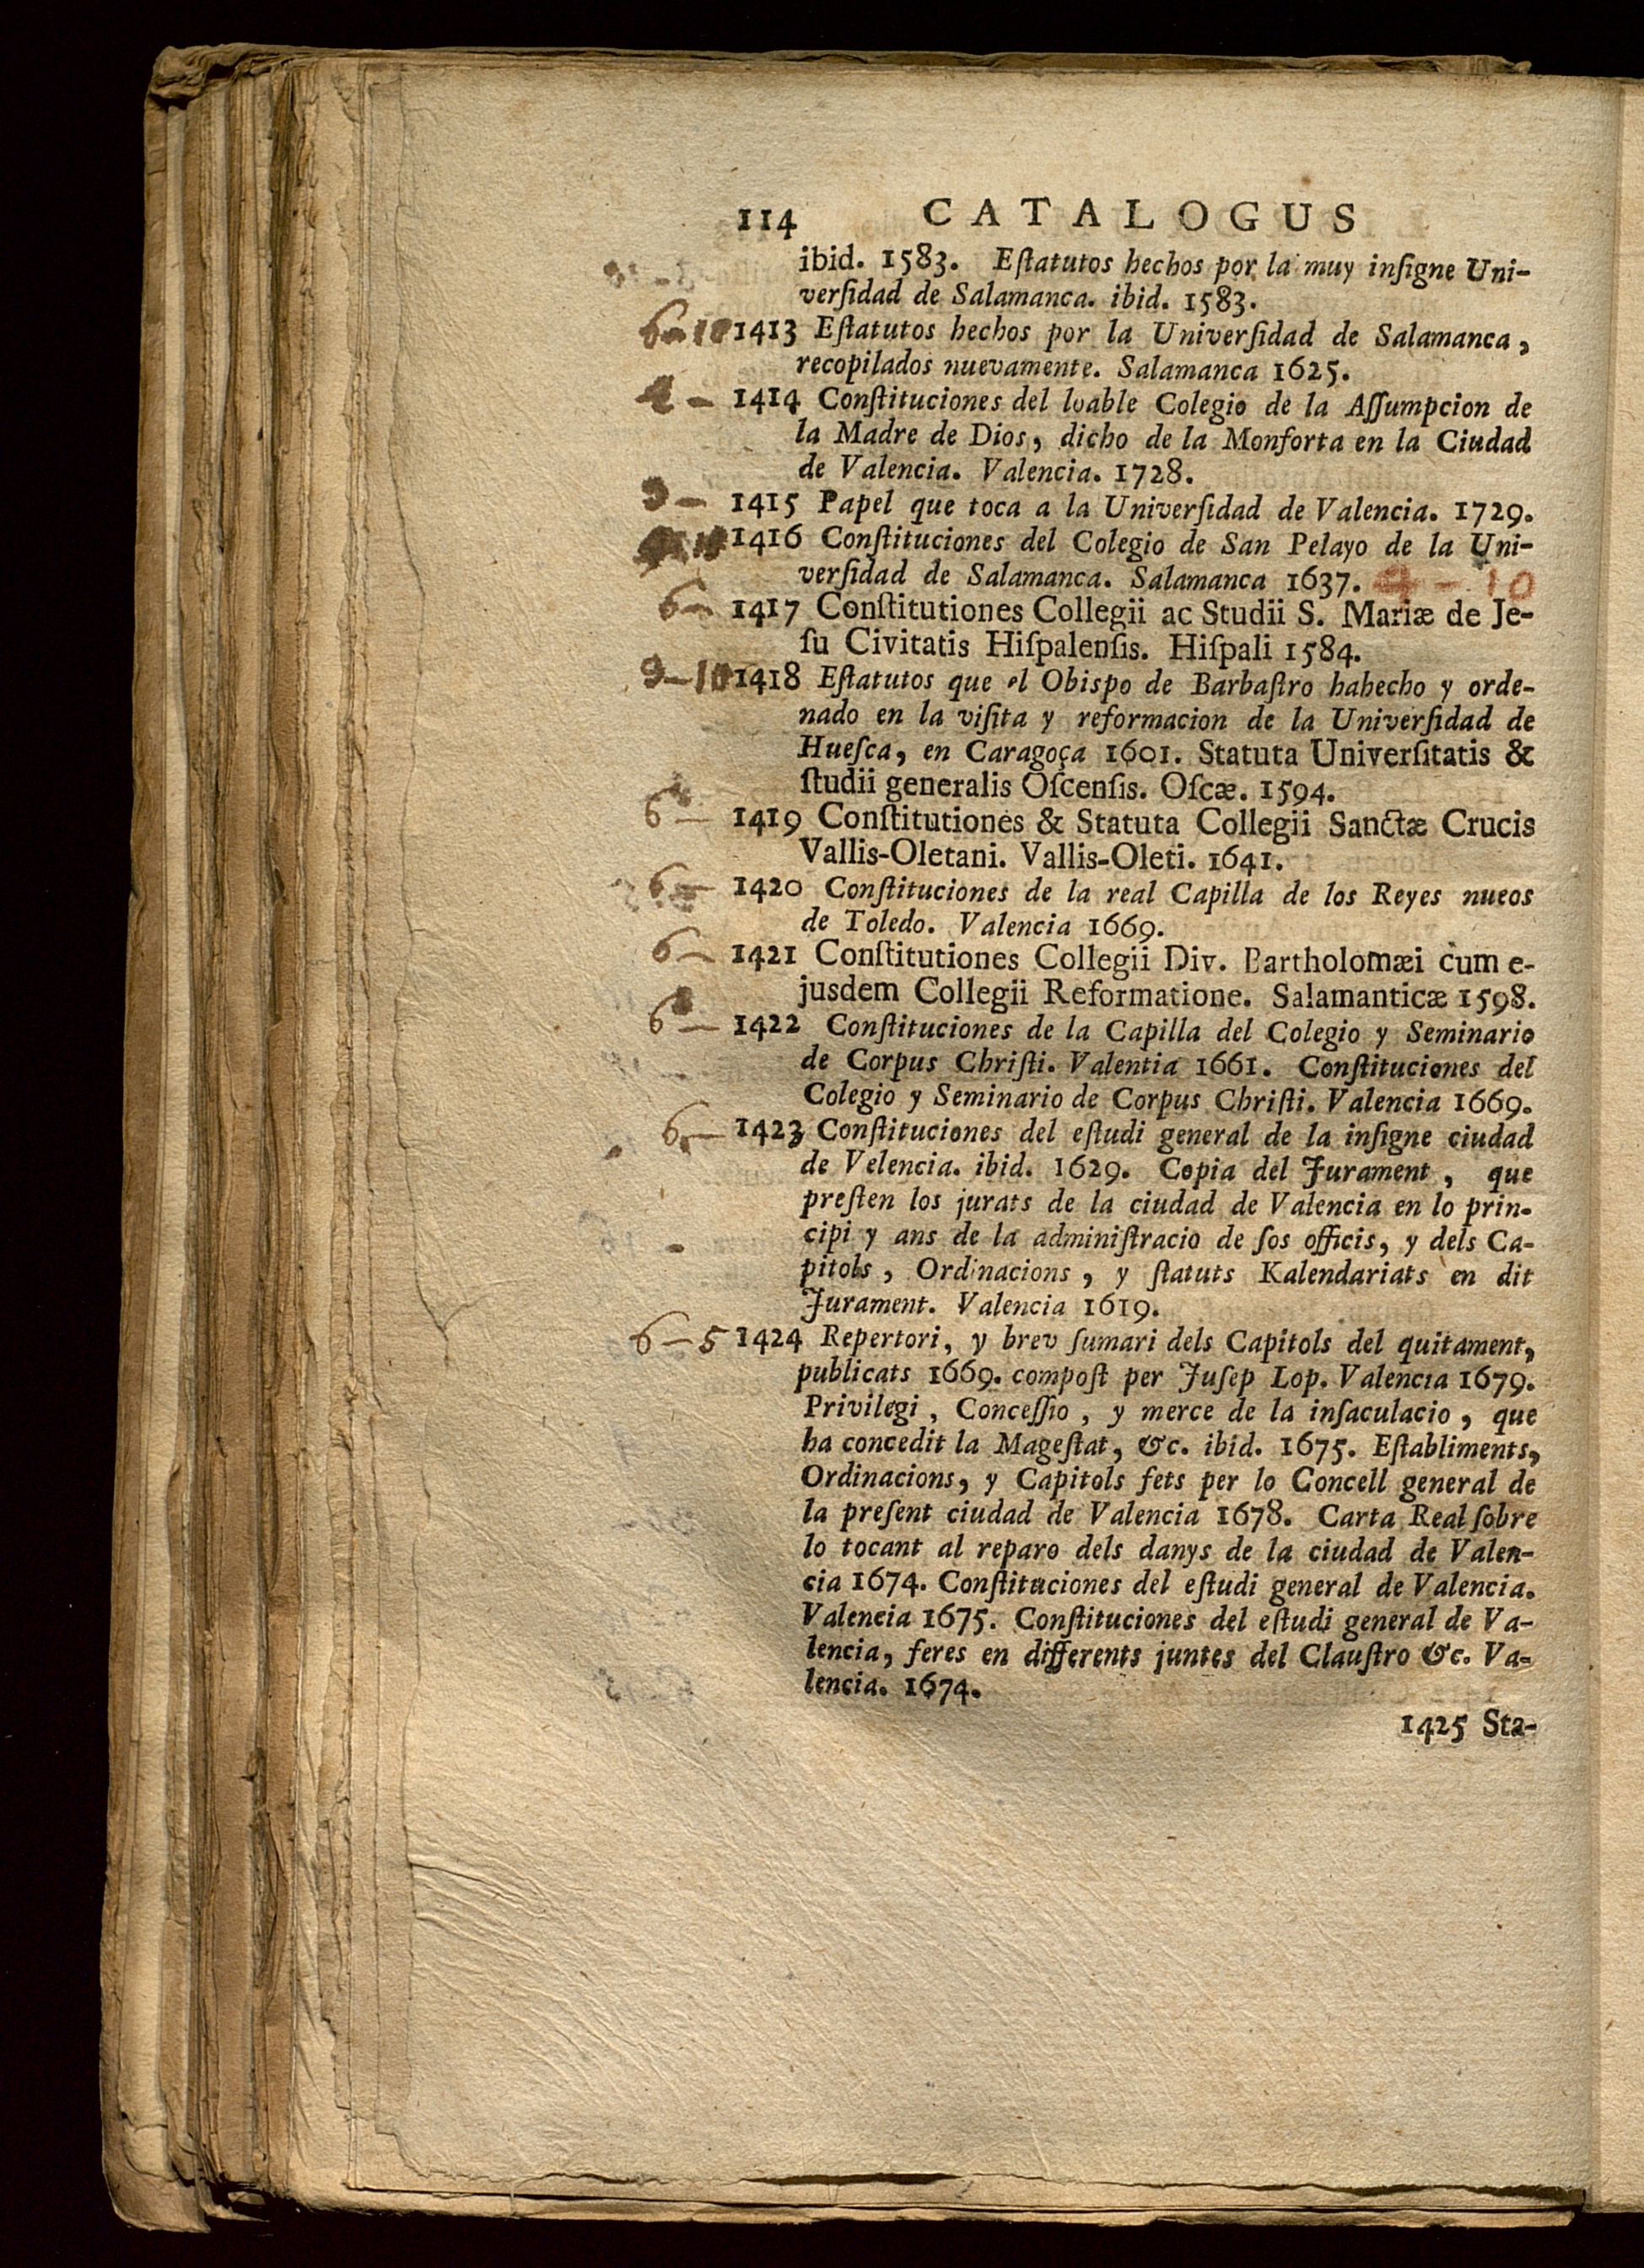 114 CATALOGUS
ibid. 1583. Eſtatutos hechos por la muy inſigne Uni-
verſidad de Salamanca. ibid. 1583.
6-10 1413 Eſtatutos hechos por la Univerſidad de Salamanca,
recopilados nuevamente. Salamanca 1625.
4 - 1414 Conſtituciones del loable Colegio de la Aſſumpcion de
la Madre de Dios, dicho de la Monforta en la Ciudad
de Valencia. Valencia. 1728.
3 - 1415 Papel que toca a la Univerſidad de Valencia. 1729.
1416 Conſtituciones del Colegio de San Pelayo de la Uni-
verſidad de Salamanca. Salamanca 1637. 4 - 10
6 - 1417 Conſtitutiones Collegii ac Studii S. Mariæ de Je-
ſu Civitatis Hiſpalenſis. Hiſpali 1584.
3-10 1418 Eſtatutos que el Obispo de Barbaſtro hahecho y orde-
nado en la viſita y reformacion de la Univerſidad de
Hueſca, en Caragoça 1601. Statuta Univerſitatis &
ſtudii generalis Oſcenſis. Oſcæ. 1594.
6 - 1419 Conſtitutiones & Statuta Collegii Sanctæ Crucis
Vallis-Oletani. Vallis-Oleti. 1641.
6 - 1420 Conſtituciones de la real Capilla de los Reyes nueos
de Toledo. Valencia 1669.
6 - 1421 Conſtitutiones Collegii Div. Bartholomæi cum e-
jusdem Collegii Reformatione. Salamanticæ 1598.
6 - 1422 Conſtituciones de la Capilla del Colegio y Seminario
de Corpus Chriſti. Valentia 1661. Conſtituciones del
Colegio y Seminario de Corpus Chriſti. Valencia 1669.
6 - 1423 Conſtituciones del eſtudi general de la inſigne ciudad
de Velencia. ibid. 1629. Copia del Jurament, que
preſten los jurats de la ciudad de Valencia en lo prin-
cipi y ans de la adminiſtracio de ſos officis, y dels Ca-
pitols, Ordinacions, y ſtatuts Kalendariats en dit
Jurament. Valencia 1619.
6-5 1424 Repertori, y brev ſumari dels Capitols del quitament,
publicats 1669. compoſt per Juſep Lop. Valencia 1679.
Privilegi, Conceſſio, y merce de la inſaculacio, que
ha concedit la Mageſtat, &c. ibid. 1675. Eſtabliments,
Ordinacions, y Capitols fets per lo Concell general de
la preſent ciudad de Valencia 1678. Carta Real ſobre
lo tocant al reparo dels danys de la ciudad de Valen-
cia 1674. Conſtituciones del eſtudi general de Valencia.
Valencia 1675. Conſtituciones del eſtudi general de Va-
lencia, feres en differents juntes del Clauſtro &c. Va-
lencia. 1674.
1425 Sta-